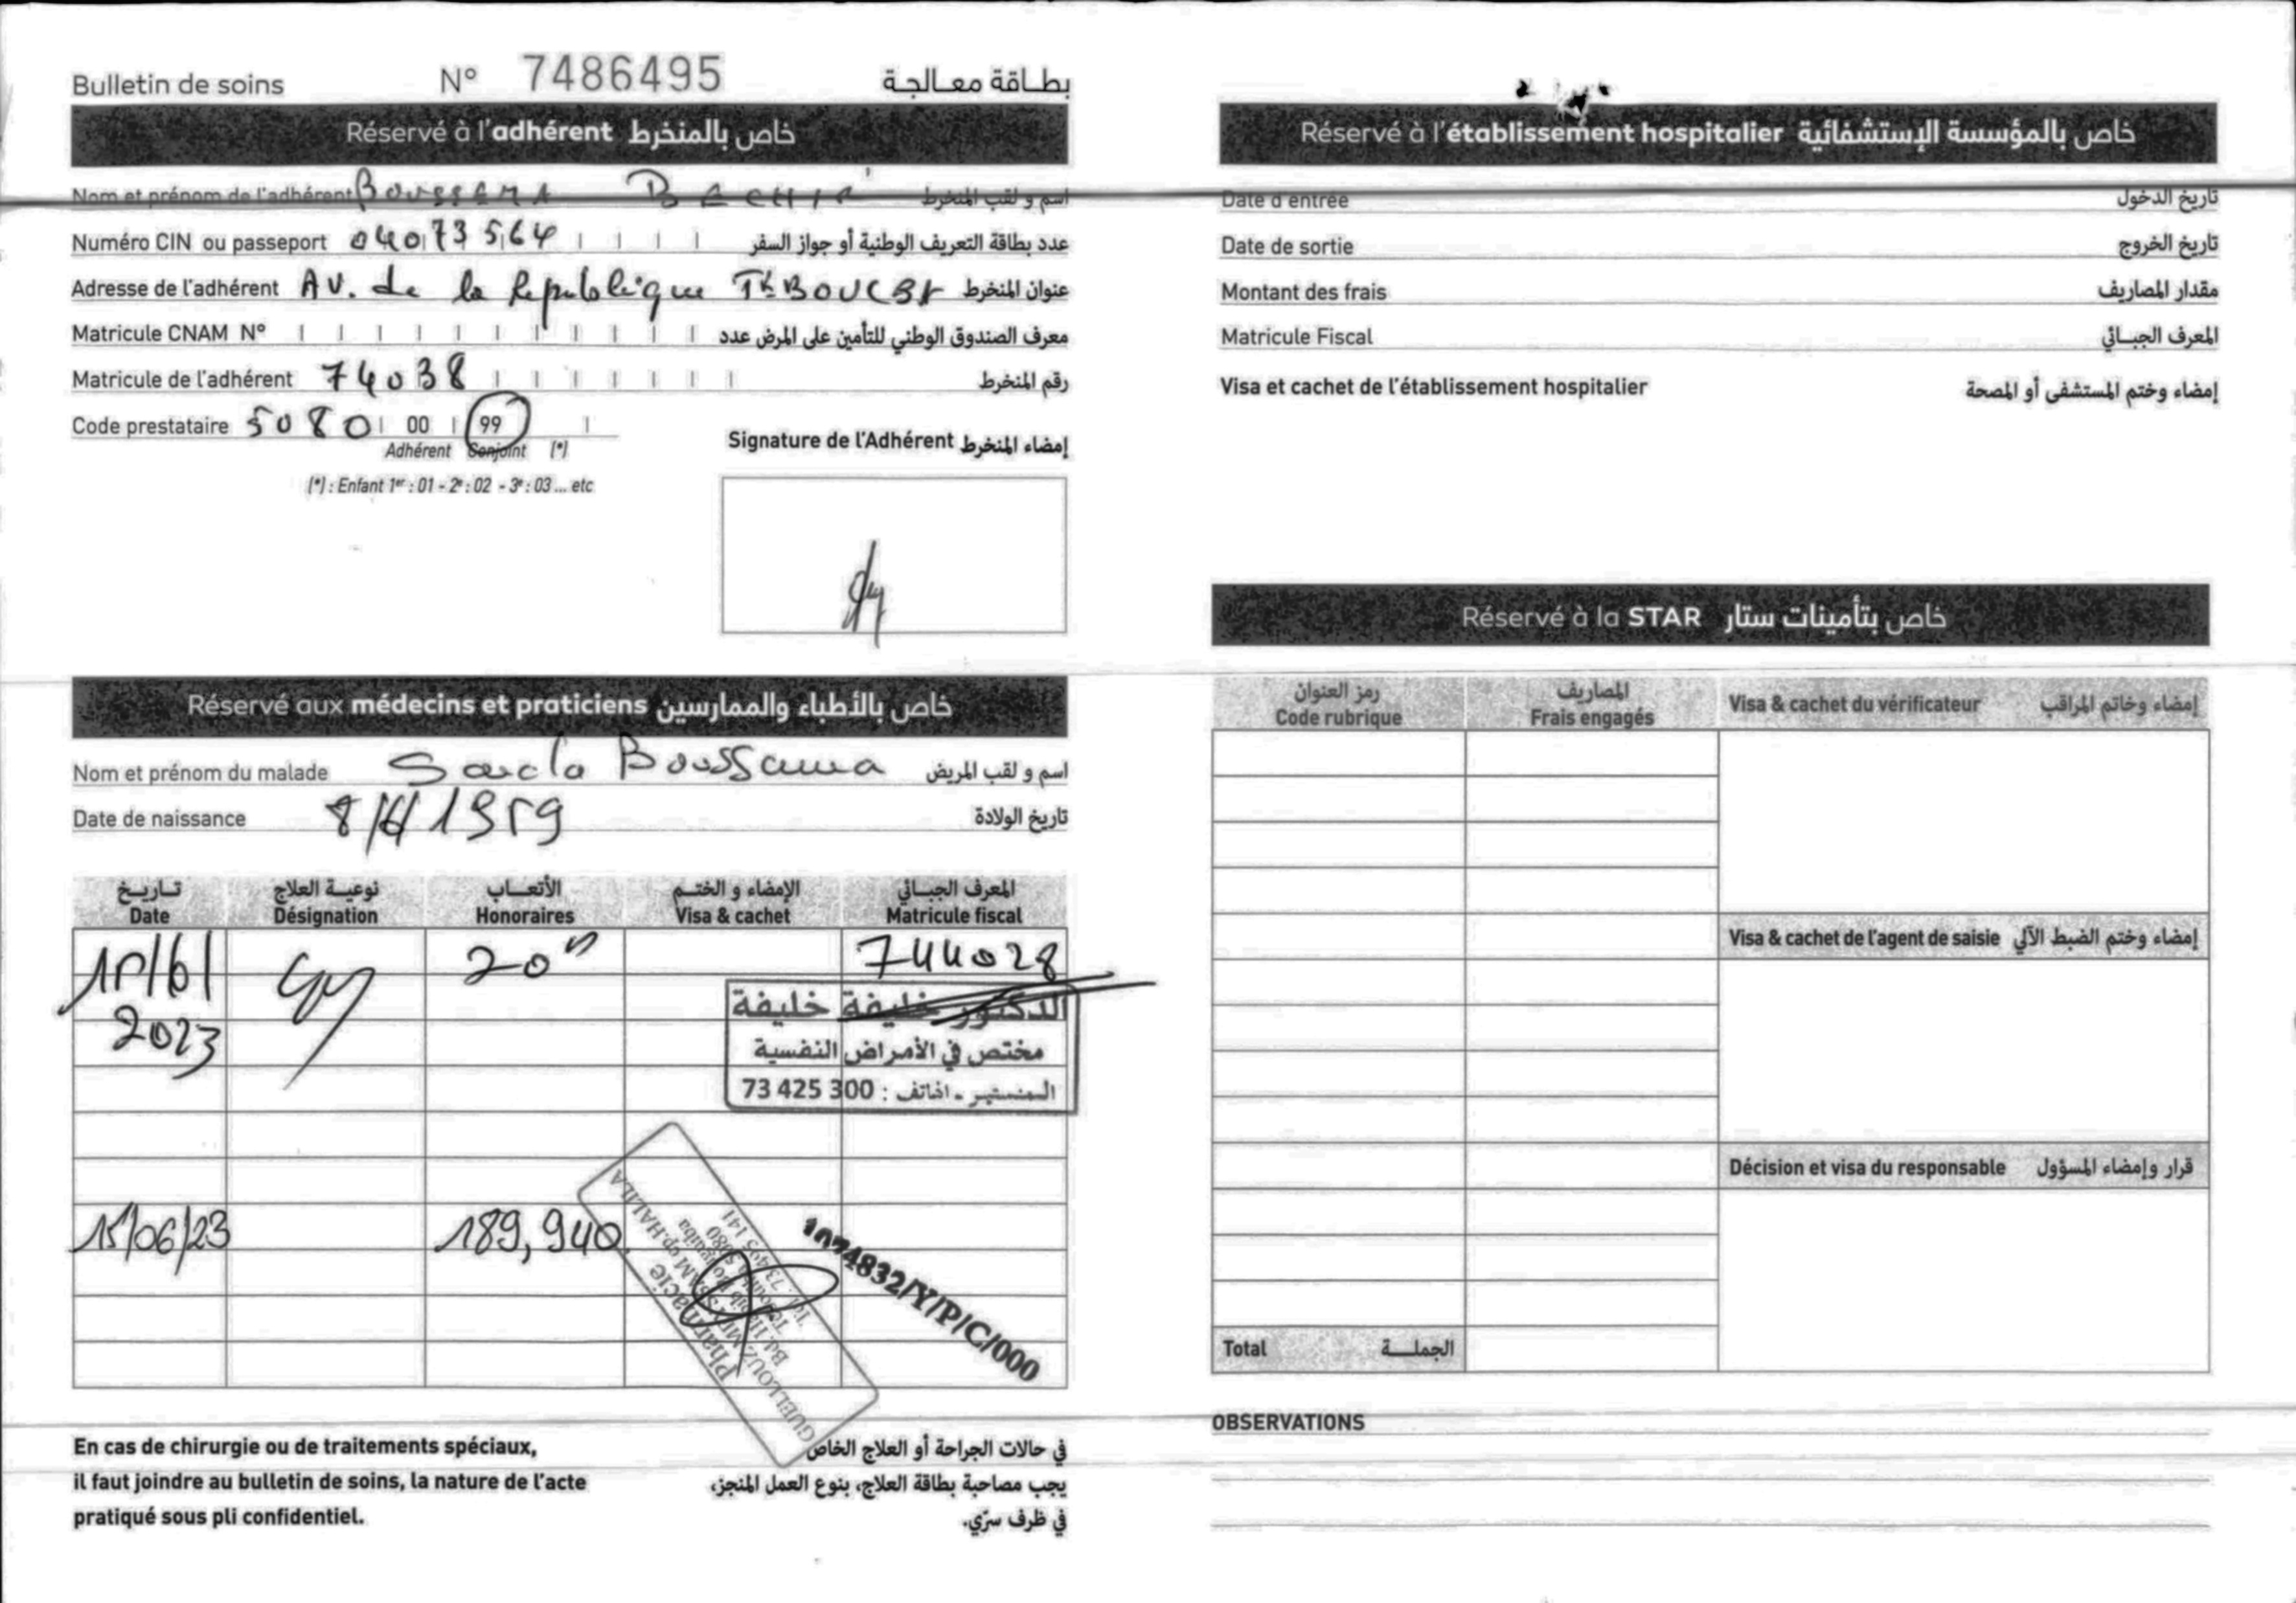 Bulletin de soins N° 7486495 بطاقة معالجة
Réservé à l'adhérent خاص بالمنخرط
Nom et prénom de l'adhérent BOUSSAMA BECHIR اسم و لقب المنخرط
Numéro CIN ou passeport 04073564 عدد بطاقة التعريف الوطنية أو جواز السفر
Adresse de l'adhérent AV. de la Republique عنوان المنخرط
Matricule CNAM N° معرف الصندوق الوطني للتأمين على المرض عدد
Matricule de l'adhérent 74038 رقم المنخرط
Code prestataire 5080 00 99
Adhérent Conjoint (*)
(*) : Enfant 1er : 01 - 2e : 02 - 3e : 03 ... etc
Signature de l'Adhérent إمضاء المنخرط
Réservé aux médecins et praticiens خاص بالأطباء والممارسين
Nom et prénom du malade Saida Boussama اسم و لقب المريض
Date de naissance 8/6/1959 تاريخ الولادة
تاريخ نوعية العلاج الأتعاب الإمضاء و الختم المعرف الجبائي
Date Désignation Honoraires Visa & cachet Matricule fiscal
15/6/ 20 744028
2023
الدكتور خليفة خليفة
مختص في الأمراض النفسية
المنستير - الهاتف : 300 425 73
15/06/23 189,940
Pharmacie
GUELLOUZ MRISAM ep.HALILA
Bd. H bib Bourguiba
Téboulba 5080
Tél. 73 495 141
1074832/Y/P/C/000
En cas de chirurgie ou de traitements spéciaux,
il faut joindre au bulletin de soins, la nature de l'acte
pratiqué sous pli confidentiel.
في حالات الجراحة أو العلاج الخاص
يجب مصاحبة بطاقة العلاج، بنوع العمل المنجز،
في ظرف سرّي.
Réservé à l'établissement hospitalier خاص بالمؤسسة الإستشفائية
Date d'entrée تاريخ الدخول
Date de sortie تاريخ الخروج
Montant des frais مقدار المصاريف
Matricule Fiscal المعرف الجبائي
Visa et cachet de l'établissement hospitalier إمضاء وختم المستشفى أو المصحة
Réservé à la STAR خاص بتأمينات ستار
رمز العنوان المصاريف
Code rubrique Frais engagés Visa & cachet du vérificateur إمضاء وخاتم المراقب
Visa & cachet de l'agent de saisie إمضاء وختم الضبط الآلي
Décision et visa du responsable قرار وإمضاء المسؤول
Total الجملة
OBSERVATIONS